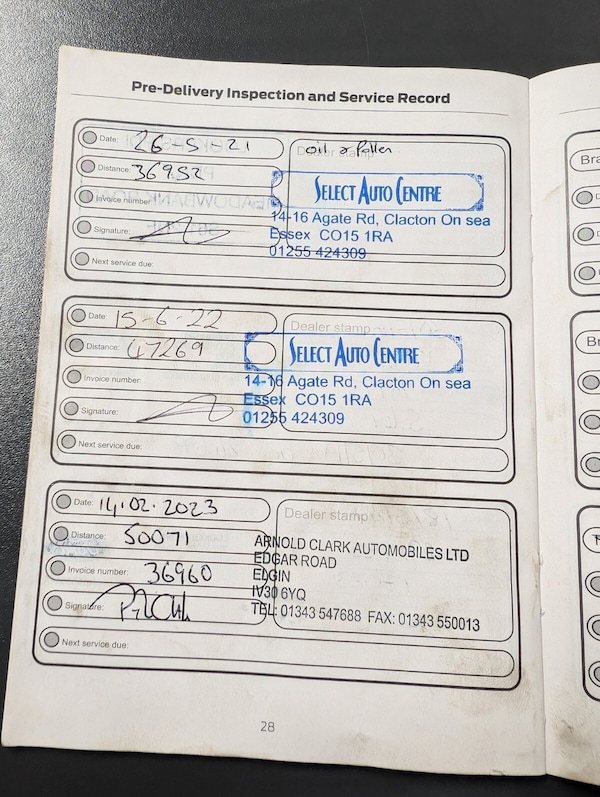 Pre-Delivery Inspection and Service Record
Date: 26-5-21
oil & filter
Dealer stamp
Distance: 36952
SELECT AUTO CENTRE
Invoice number:
14-16 Agate Rd, Clacton On sea
Signature:
Essex CO15 1RA
01255 424309
Next service due:
Date: 15-6-22
Dealer stamp
Distance: 47269
SELECT AUTO CENTRE
Invoice number:
14-16 Agate Rd, Clacton On sea
Signature:
Essex CO15 1RA
01255 424309
Next service due:
Date: 14.02.2023
Dealer stamp
Distance: 50071
ARNOLD CLARK AUTOMOBILES LTD
EDGAR ROAD
Invoice number: 36960
ELGIN
IV30 6YQ
Signature:
TEL: 01343 547688 FAX: 01343 550013
Next service due:
28
Bra
D
Br